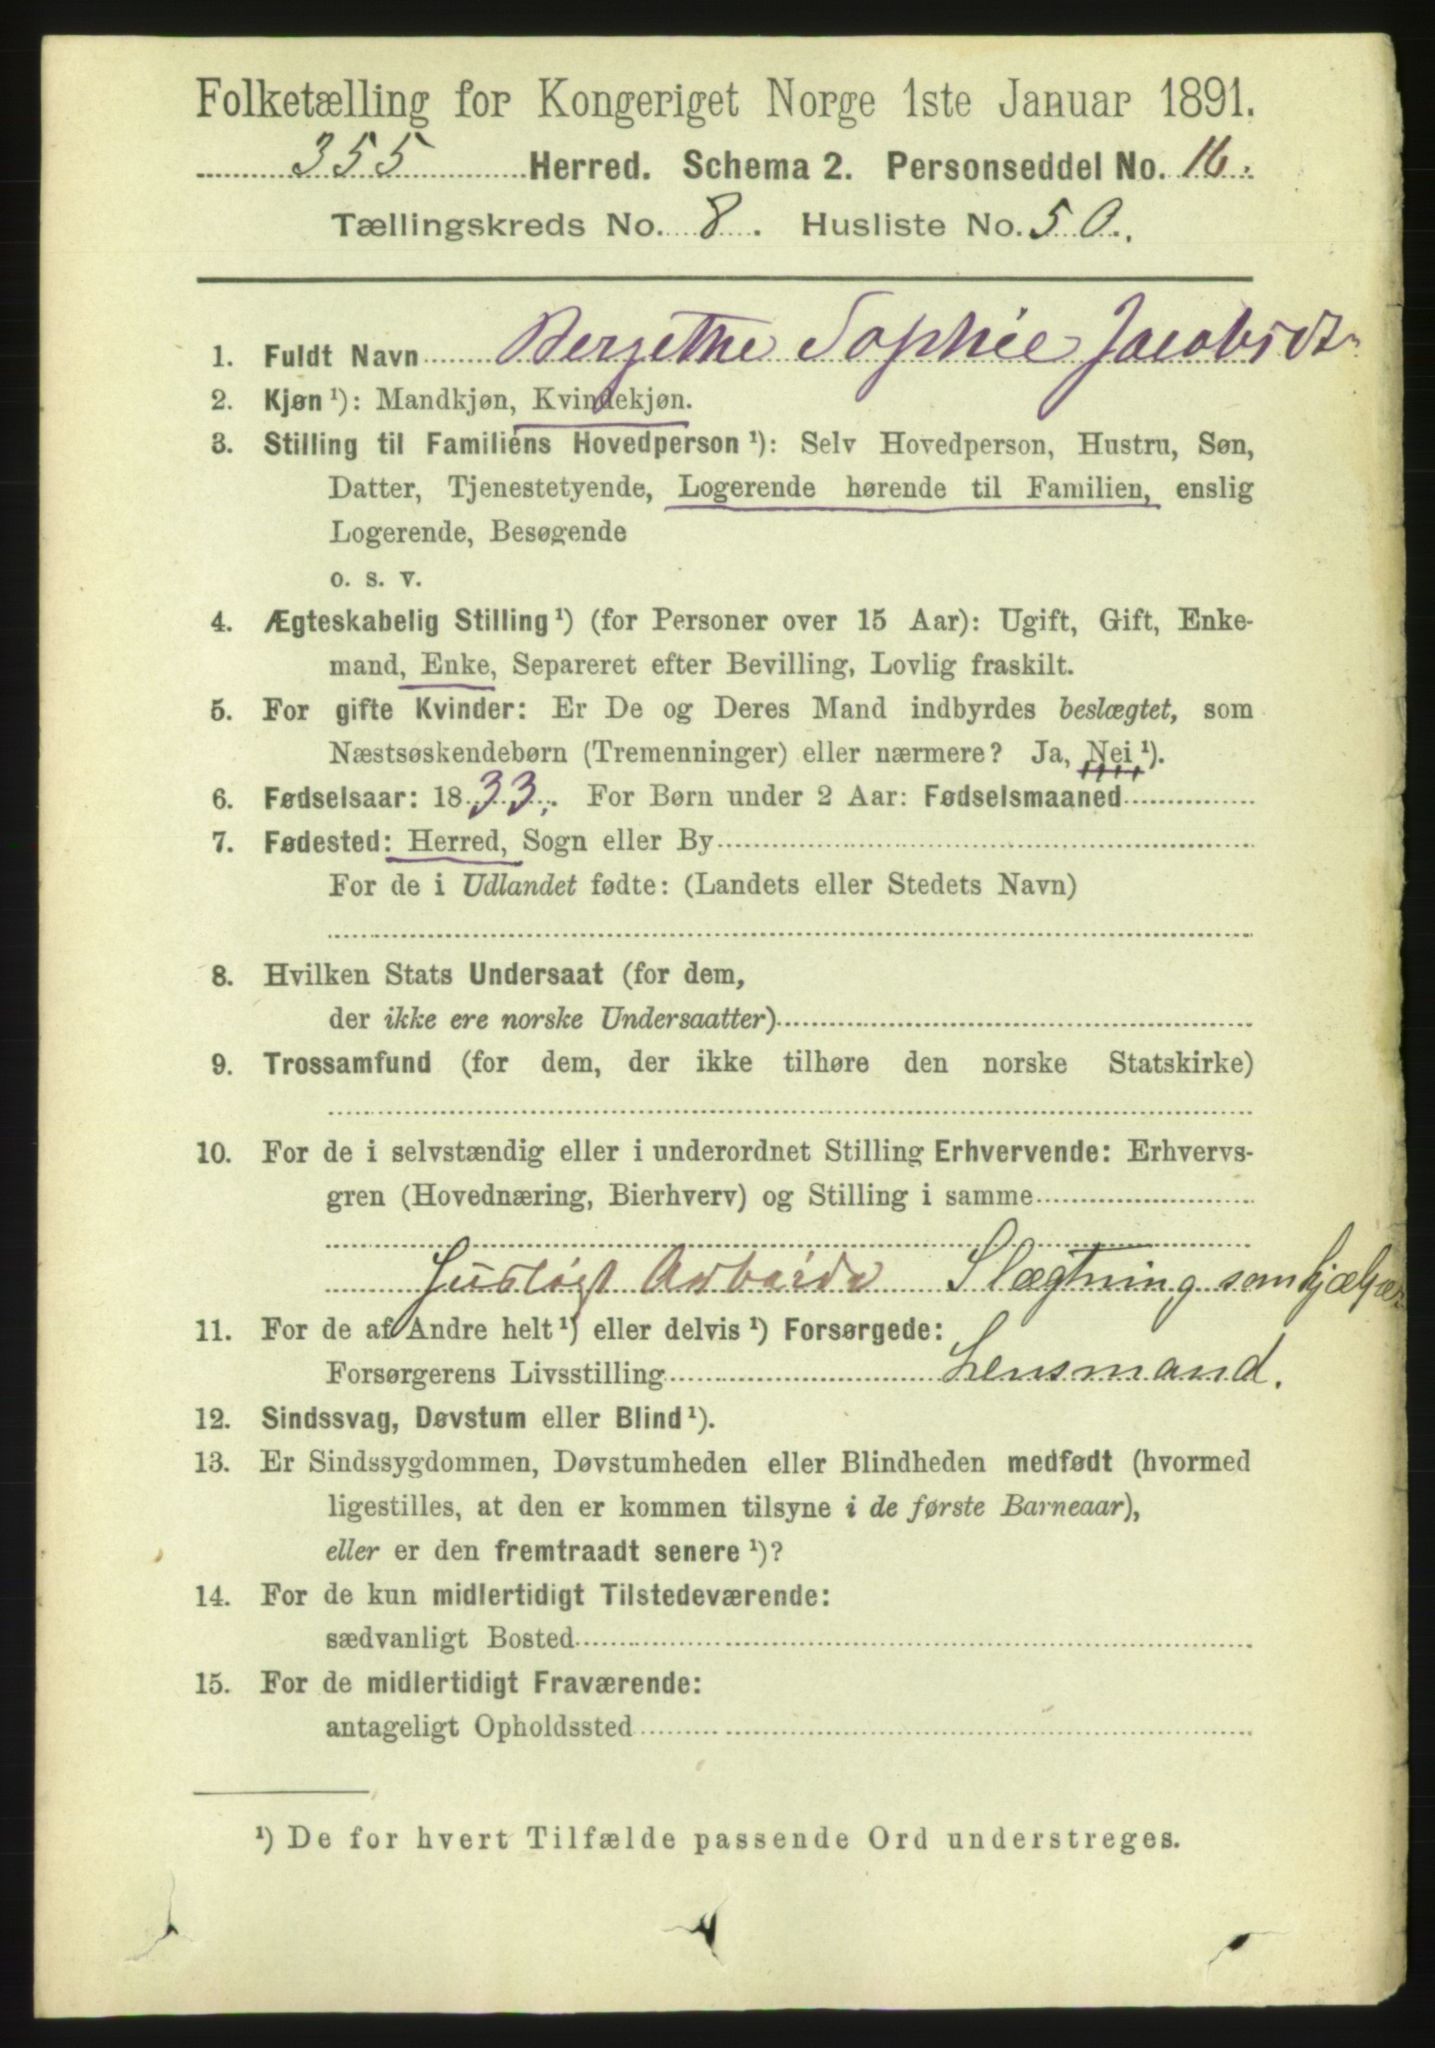 Folketælling for Kongeriget Norge 1ste Januar 1891.
355 Herred. Schema 2. Personseddel No. 16.
Tællingskreds No. 8. Husliste No. 50.
1. Fuldt Navn Bergethe Sophie Jacobsdt.
2. Kjøn ¹): Mandkjøn, Kvindekjøn.
3. Stilling til Familiens Hovedperson ¹): Selv Hovedperson, Hustru, Søn,
Datter, Tjenestetyende, Logerende hørende til Familien, enslig
Logerende, Besøgende
o. s. v.
4. Ægteskabelig Stilling ¹) (for Personer over 15 Aar): Ugift, Gift, Enke-
mand, Enke, Separeret efter Bevilling, Lovlig fraskilt.
5. For gifte Kvinder: Er De og Deres Mand indbyrdes beslægtet, som
Næstsøskendebørn (Tremenninger) eller nærmere? Ja, Nei ¹).
6. Fødselsaar: 1833. For Børn under 2 Aar: Fødselsmaaned
7. Fødested: Herred, Sogn eller By
For de i Udlandet fødte: (Landets eller Stedets Navn)
8. Hvilken Stats Undersaat (for dem,
der ikke ere norske Undersaatter)
9. Trossamfund (for dem, der ikke tilhøre den norske Statskirke)
10. For de i selvstændig eller i underordnet Stilling Erhvervende: Erhvervs-
gren (Hovednæring, Bierhverv) og Stilling i samme
Husligt Arbeide Slægtning som hjælper
11. For de af Andre helt ¹) eller delvis ¹) Forsørgede:
Forsørgerens Livsstilling Lensmand.
12. Sindssvag, Døvstum eller Blind ¹).
13. Er Sindssygdommen, Døvstumheden eller Blindheden medfødt (hvormed
ligestilles, at den er kommen tilsyne i de første Barneaar),
eller er den fremtraadt senere ¹)?
14. For de kun midlertidigt Tilstedeværende:
sædvanligt Bosted
15. For de midlertidigt Fraværende:
antageligt Opholdssted
¹) De for hvert Tilfælde passende Ord understreges.